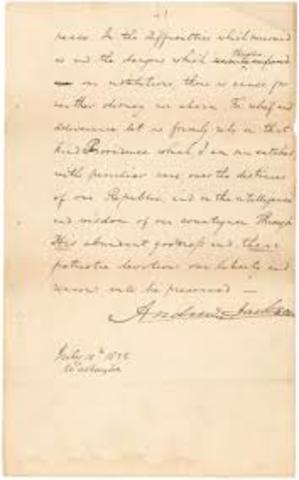 peace. In the difficulties which surround
us and the dangers which threaten
our institutions, there is cause for
neither dismay nor alarm. For relief and
deliverance let us firmly rely on that
kind Providence which I am sure watches
with peculiar care over the destinies
of our Republic and on the intelligence
and wisdom of our countrymen. Through
His abundant goodness and their
patriotic devotion our liberty and
Union will be preserved —
Andrew Jackson
July 10th 1832
Washington